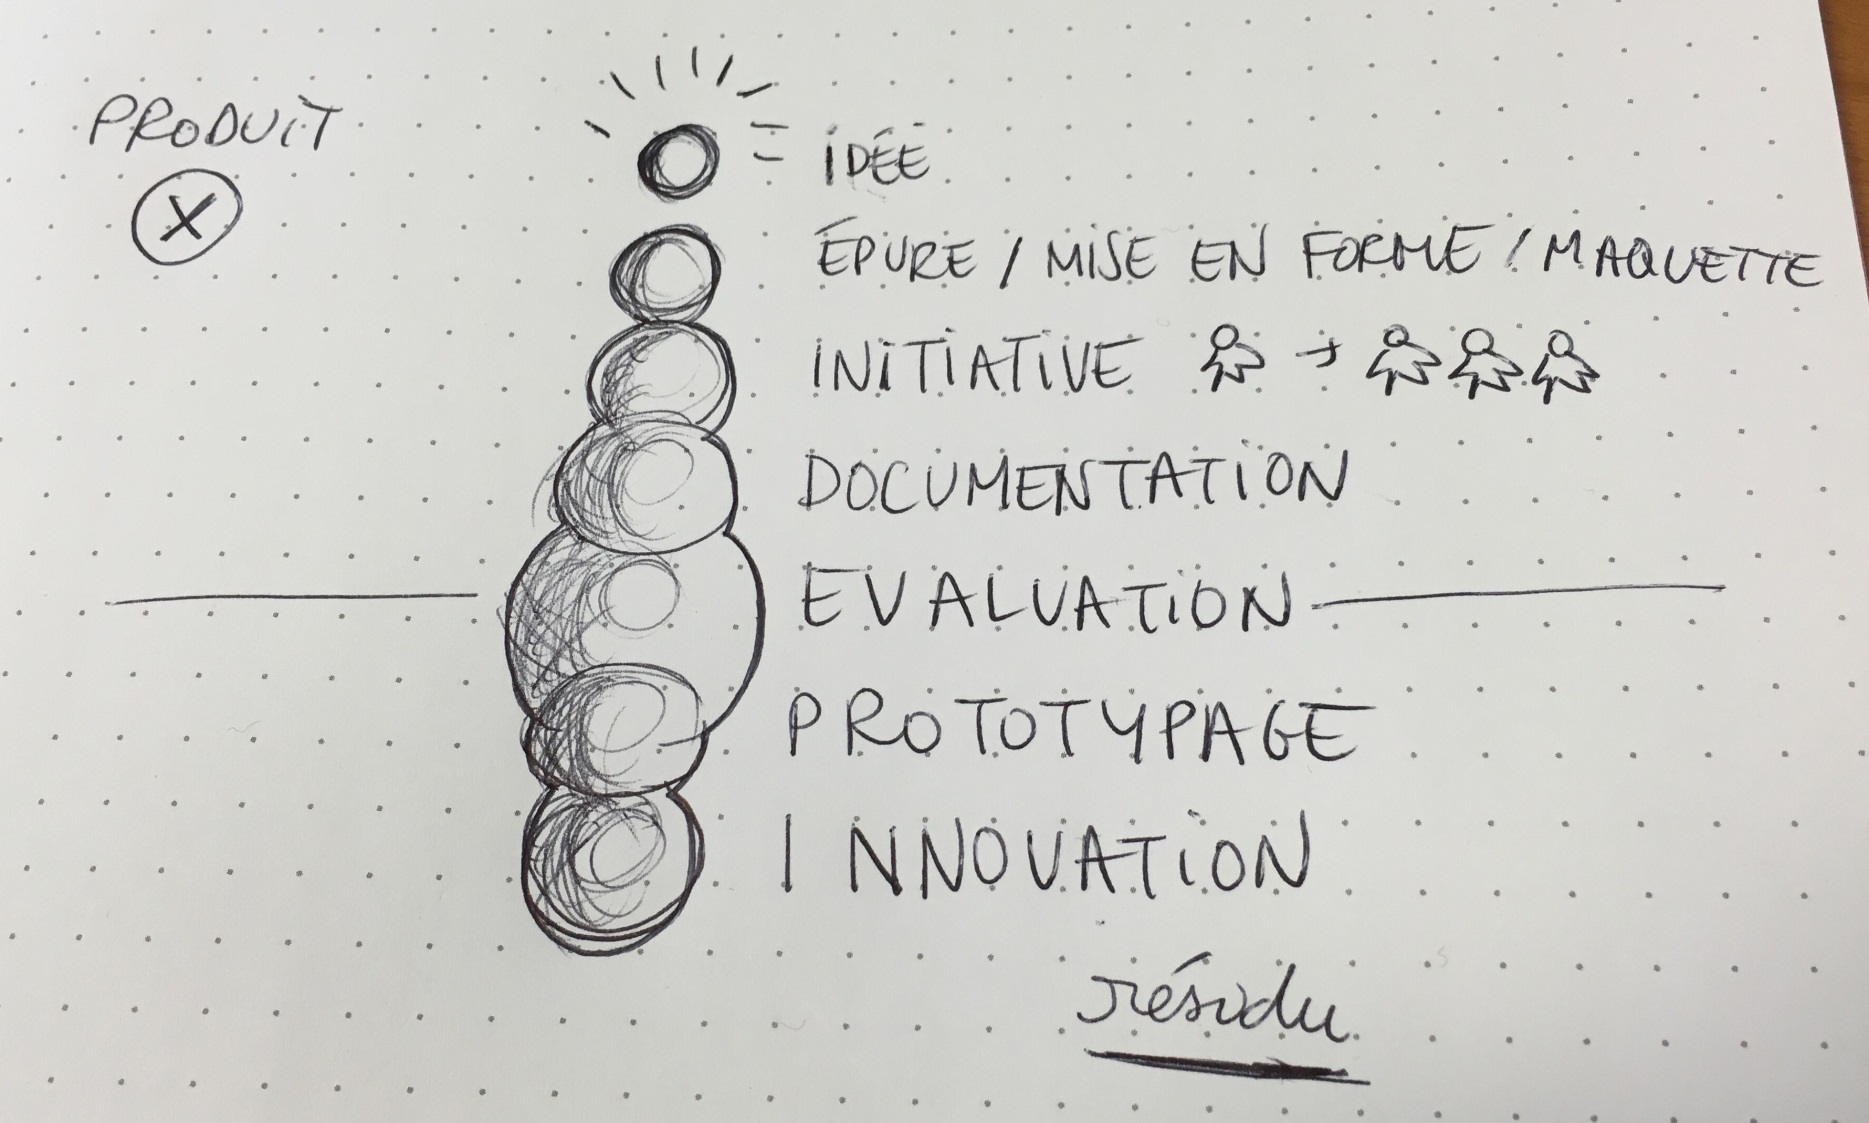 PRODUIT
X
IDÉE
ÉPURE / MISE EN FORME / MAQUETTE
INITIATIVE →
DOCUMENTATION
EVALUATION
PROTOTYPAGE
INNOVATION
résidu